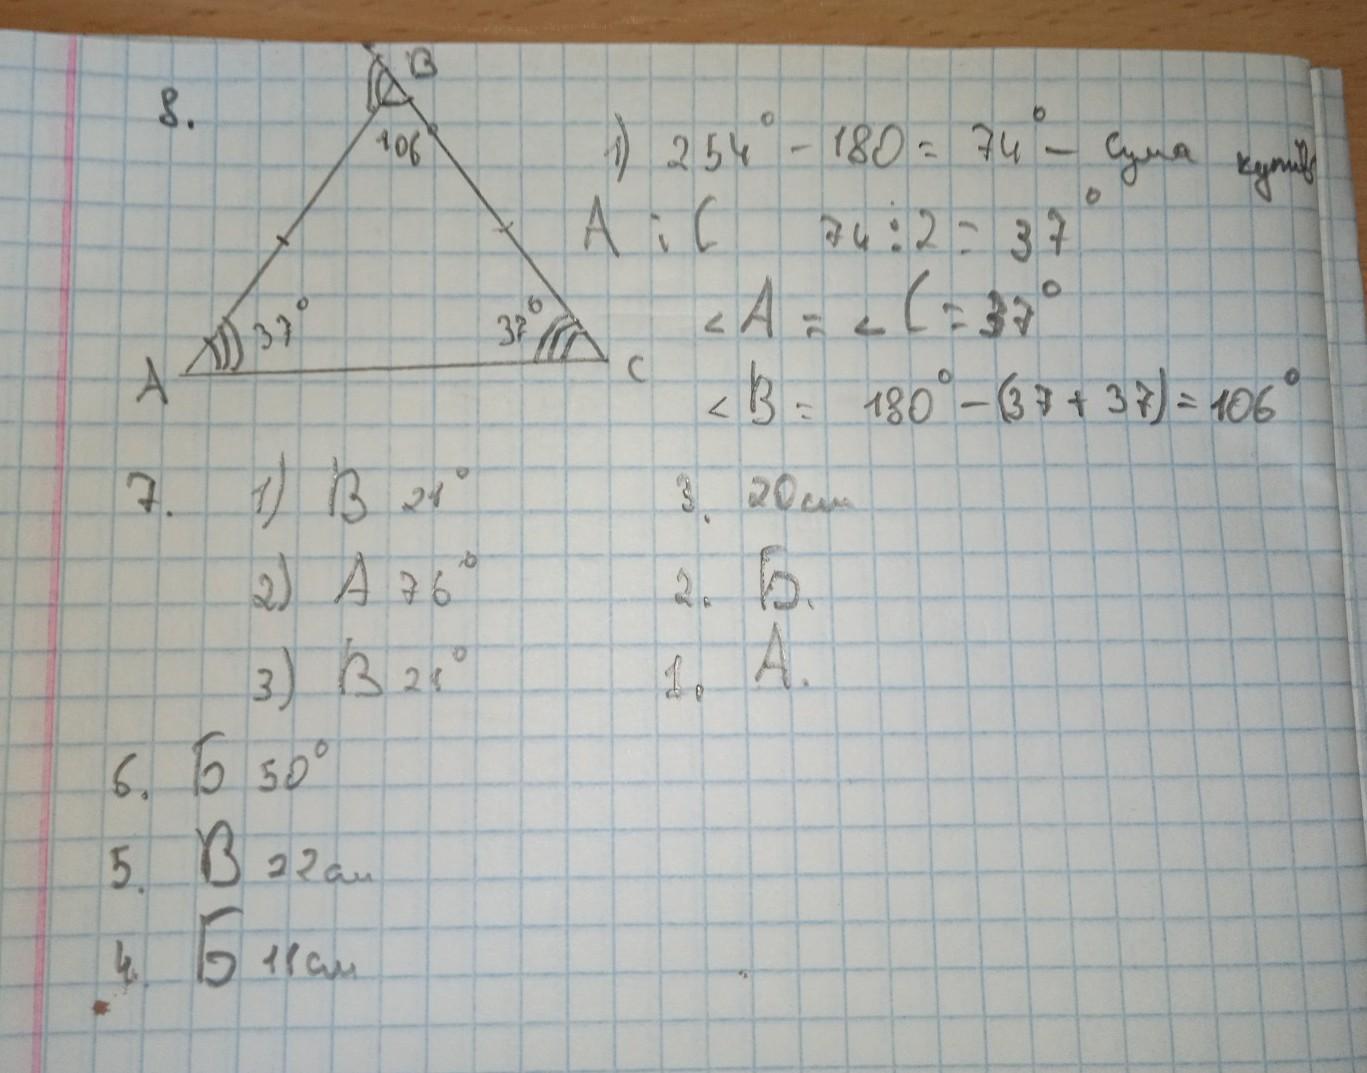 8.
B
106°
37°
37°
A
C
1) 254° - 180 = 74° - сума кутів
A і C 74 : 2 = 37°
< A = < C = 37°
< B = 180° - (37 + 37) = 106°
7. 1) В 21° 3. 20см
2) А 76° 2. Б.
3) В 21° 1. А.
6. Б 50°
5. В 22см
4. Б 11см